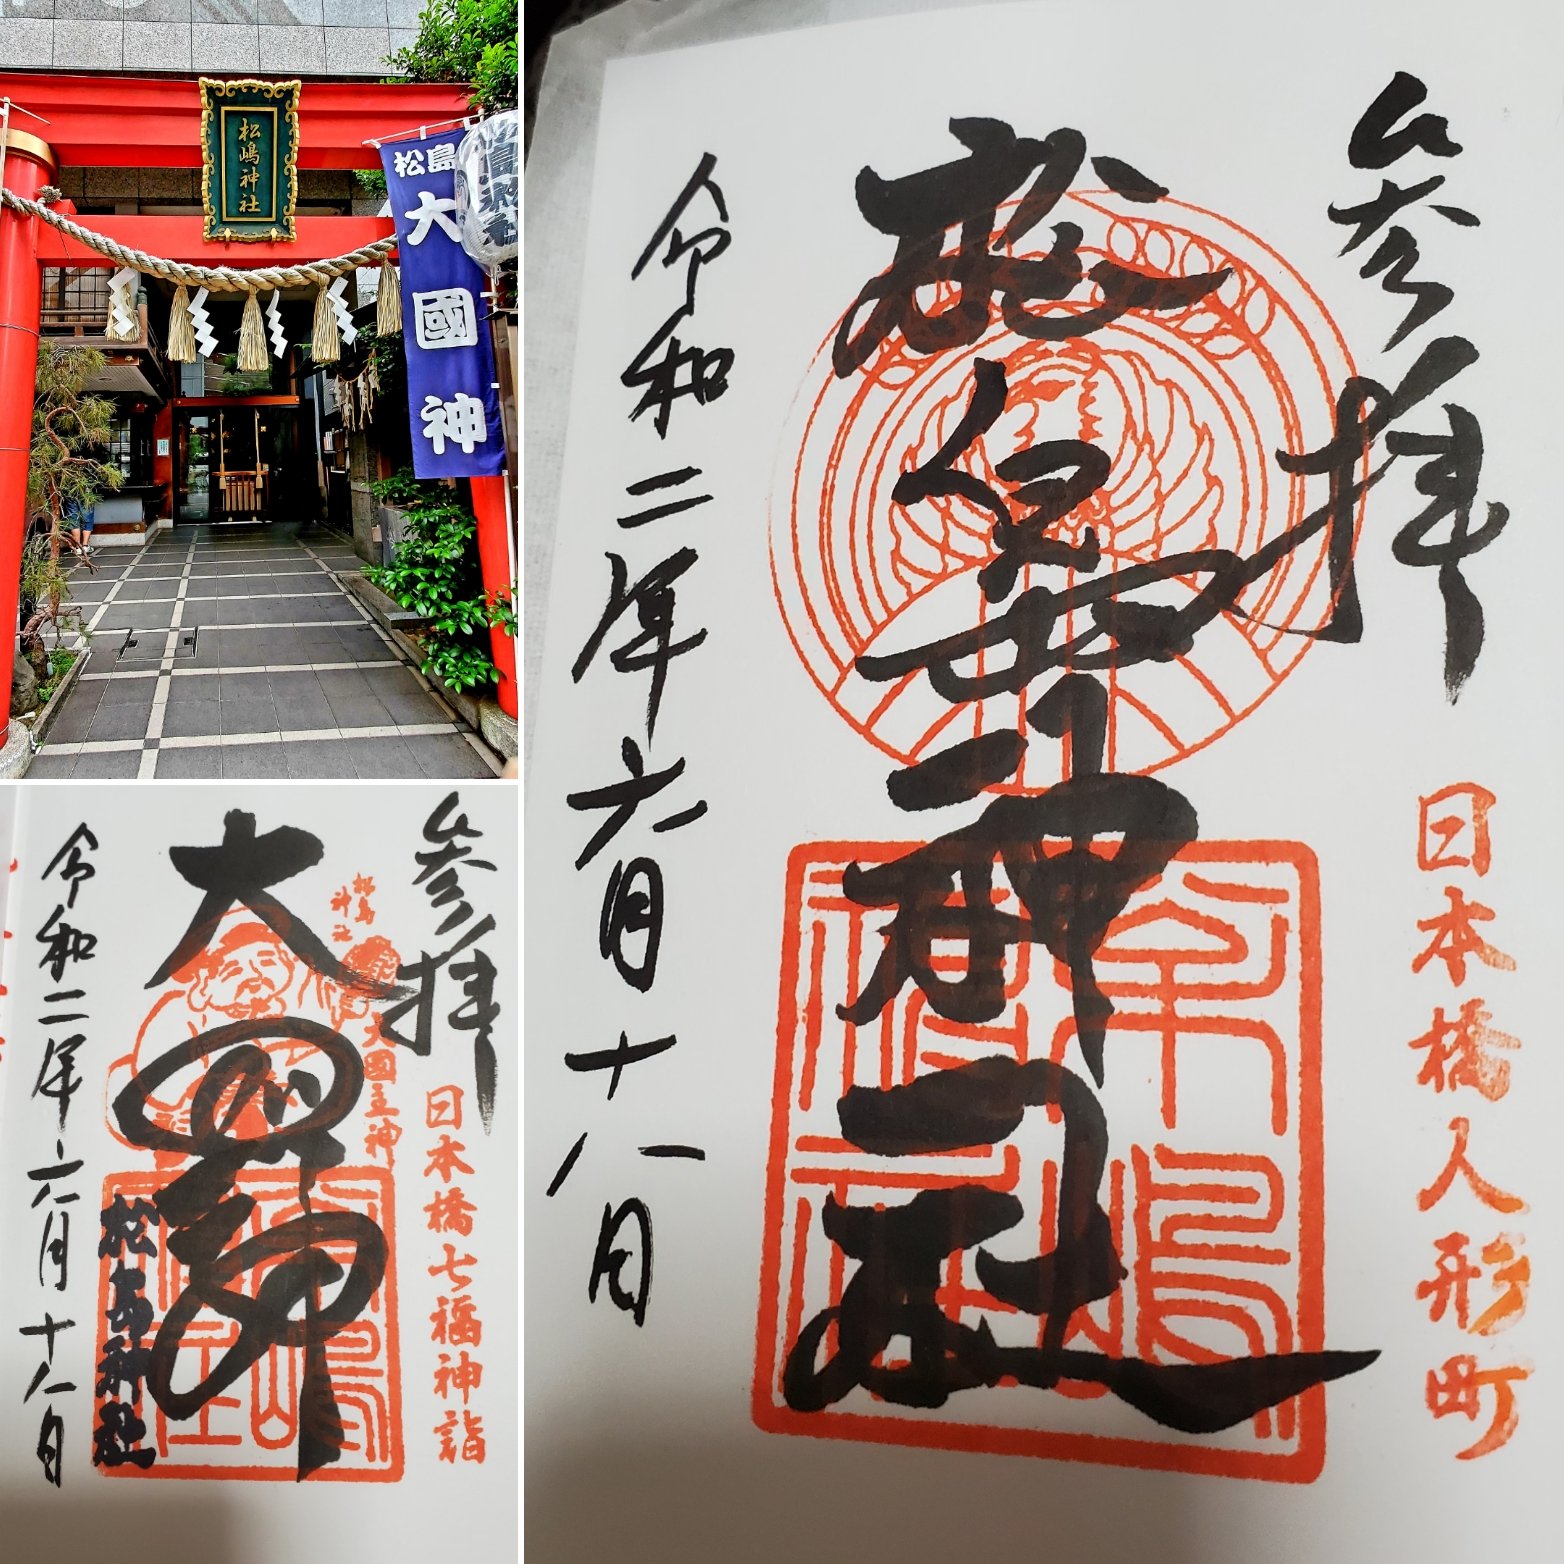 松嶋神社
松島
大國神
参拝
松島神社
日本橋人形町
令和二年六月十八日
参拝
大国神
松島神社
大国主神
日本橋七福神詣
松島神社
令和二年六月十八日